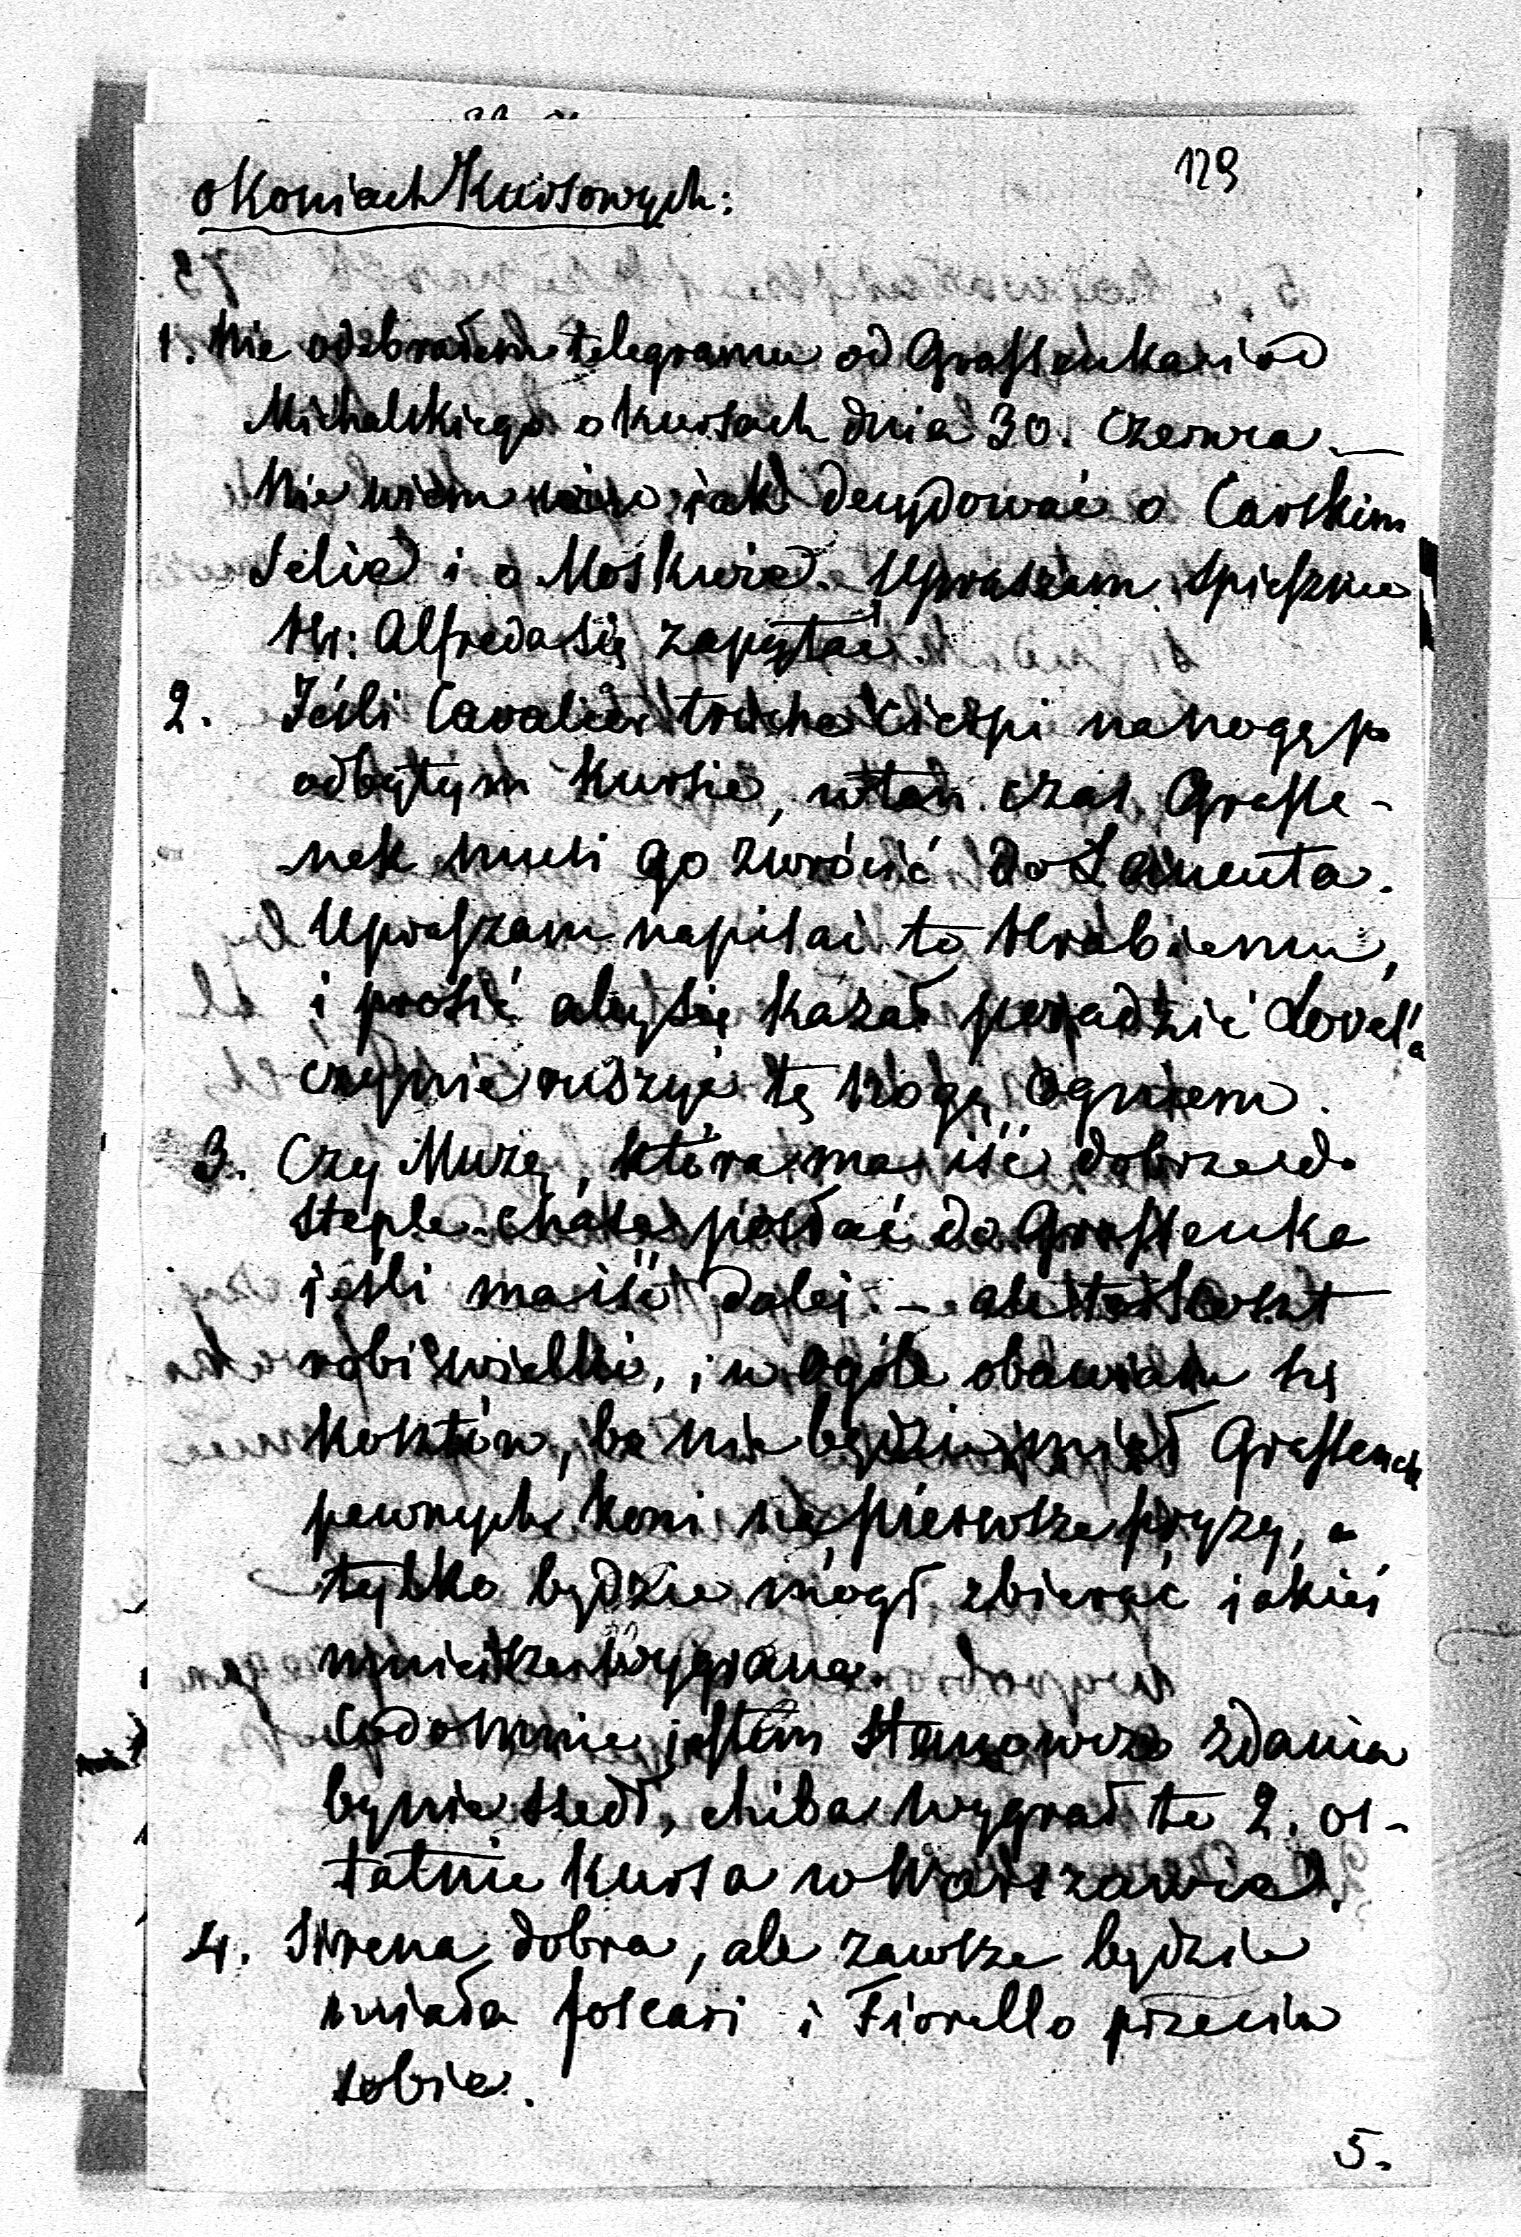 129
o koniach kursowych:
1. Nie odebrałem telegramu od Grassenka i od
Michalskiego o kursach dnia 30. Czerwca. —
Nie wiem więc jak decydować o Carskim
Siele i o Moskwie. Upraszam spiesznie
Hr: Alfreda się zapytać.
2. Jeśli Cavalier trocha cierpi na nogę po
odbytym kursie, wten czas Grasse-
nek musi go zwrócić do Łańcuta.
Upraszam napisać to Hrabiemu,
i prosić aby się kazał poradzić Lovel'a
czy nie ruszyć tę nogę ogniem.
3. Czy Muzę, która ma iść dobrze do
steple-chase posłać do Grassenka
jeśli ma iść dalej – ale to koszt
robi wielki, i w ogóle obawiam się
kosztów, bo nie będzie miał Grassenek
pewnych koni na pierwsze pryzy, a
tylko będzie mógł zbierać jakieś
mniejsze wygrane.
Co do mnie jestem stanowczo zdania
by nie szedł, chiba wygrał te 2. os-
tatnie kursa w Warszawie.
4. Sirena dobra, ale zawsze będzie
miała Foscari i Fiorello przeciw
sobie.
5.